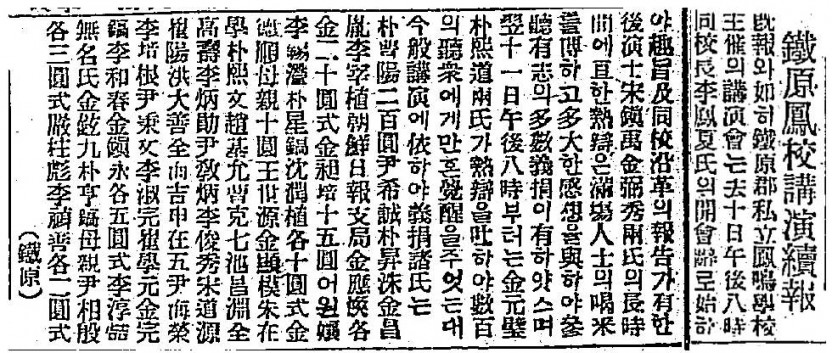 鐵原鳳校講演續報
旣報와如히鐵原郡私立鳳鳴學校
主催의講演會는去十日午後八時
同校長李鳳夏氏의開會辭로始하
야趣旨及同校沿革의報告가有한
後演士宋鎭萬金弼秀兩氏의長時
間에亘한熱辯은滿場人士의喝釆
를博하고多大한感想을與하야參
聽有志의多數義捐이有하얏스며
翌十一日午後八時부터는金元璧
朴熙道兩氏가熱辯을吐하야數百
의聽衆에게만흔覺醒을주엇는대
今般講演에依하야義捐諸氏는
朴鳳陽二百圓尹希誠朴昇洙金昌
胤李宰植朝鮮日報支局金應煥各
金二十圓式金昶培十五圓어원孃
李錫瀅朴星鎬沈潤植各十圓式金
德順母親十圓王世源金顯模朱在
學朴熙文趙基允曺克七池昌淵全
高壽李炳助尹敎炳李俊秀宋道源
崔陽洪大善全尙吉申在五尹海榮
李培根尹秉文李淑完崔學元金完
鎬李和春金領永各五圓式李淳喆
無名氏金敍九朴亨鎬母親尹相殷
各三圓式嚴柱彪李禎善各二圓式
(鐵原)